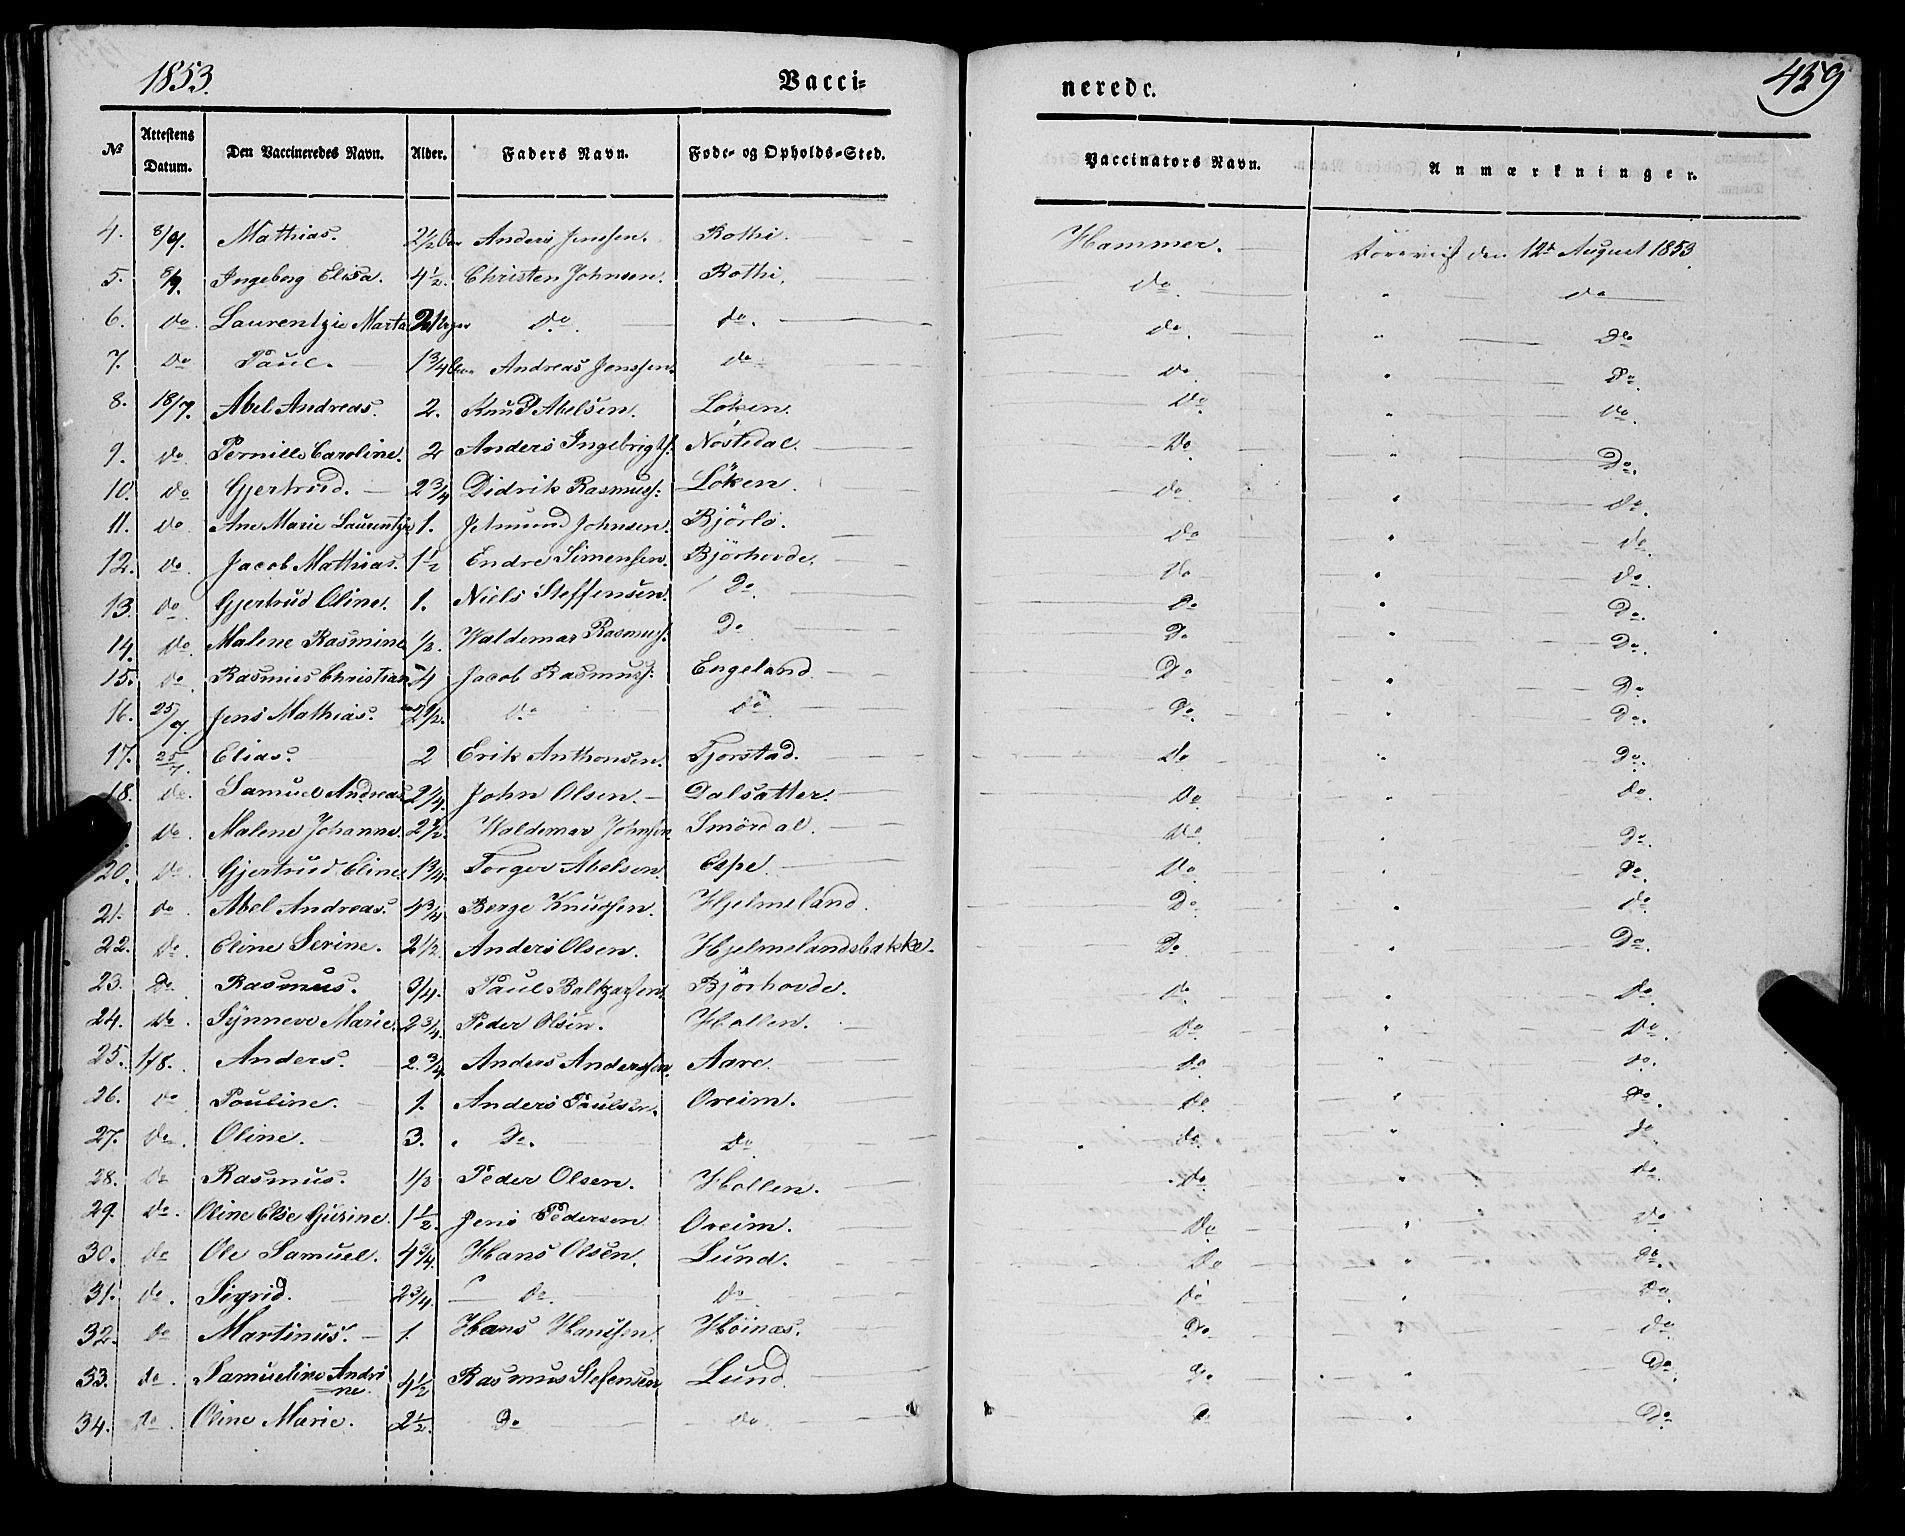 1853. Vacci= nerede. 459
No Attestens Datum. Den Vaccineredes Navn. Alder. Faders Navn. Føde- og Opholds-Sted. Vaccinators Navn. Anmærkninger.
4. 8/7. Mathias. 2½ Anders Jenssen. Rothi. Hammer. den 12te August 1853.
5. 8/7. Ingeborg Elisa. 4½. Christen Johnsen. Rothi. do " do
6. do. Laurentzie Marta do. do. do. " do
7. do Paul. 1¾ Andreas Jenssen. do do. " do.
8. 18/7. Abel Andreas. 2. Knud Abelsen. Löken. do. " do.
9. do. Pernille Caroline. 2 Anders Ingebrigts. Nöstedal. do " do.
10. do Gjertrud. 2¾ Didrik Rasmuss: Löken. do. " do.
11. do Ane Marie Laurentze 1. Jetmund Johnsen. Björlo. do " do.
12. do. Jacob Mathias. 1½ Endre Simensen. Björhovde. do " do.
13. do. Gjertrud Oline. 1. Niels Steffensen. do. do " do.
14. do. Malene Rasmine ½. Waldemar Rasmuss: do do " do.
15. do. Rasmus Christian 4 Jacob Rasmuss: Engeland do " do
16. 25/7. Jens Mathias. 2½. do do do. " do.
17. 25/7. Elias. 2 Erik Anthonsen. Tjorstad. do " do.
18. do. Samuel Andreas 2¼. John Olsen. Dalsatter. do " do.
do. Malene Johanne. 2½. Waldemar Johnsen Smördal. do. " do.
20. do. Gjertrud Eline 1¾. Torger Abelsen. Espe. do. " do.
21. do. Abel Andreas. 4¾ Berge Knudsen. Hjelmeland. do. " do.
22. do. Eline Serine. 2½. Anders Olsen. Hjelmelandsbakke. do. " do.
23. do. Rasmus. ¾. Paul Baltzarsen. Björhovde. do. " do.
24. do. Synneve Marie. 2¾. Peder Olsen. Hollen. do. " do.
25. 1/8. Anders. 2.¾ Anders Anderssen. Aare. do. " do.
26. do Pouline. 1. Anders Paulsen. Oreim. do. " do.
27. do. Oline. 3. do. do do. " do.
28. do Rasmus. Peder Olsen. Hollen. do. " do.
29. do. Oline Else Gurine. 1½. Jens Pedersen Oreim. do. " do.
30. do Ole Samuel. 4¾. Hans Olsen. Lund. do " do.
31. do. Sigrid. 2¾. do. do. do " do.
32. do Martinus. 1. Hans Hanssen. Höinæs. do. " do.
33. do. Samueline Andrine. 4½ Rasmus Stefensen Lund. do. " do.
34. do. Oline Marie. 2½. do do. do " do.